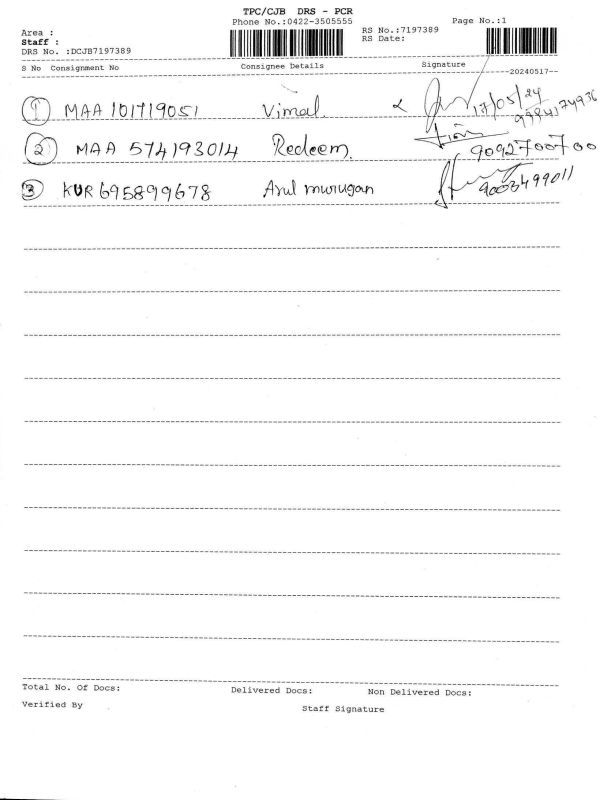 TPC/CJB DRS - PCR
Phone No.:0422-3505555 Page No.:1
Area : RS No.:7197389
Staff : RS Date:
DRS No. :DCJB7197389
S No Consignment No Consignee Details Signature
--20240517--
1 MAA 101719051 Vimal 17/05/24
9984174936
2 MAA 574193014 Redeem. 9092700700
3 KUR 695899678 Arul murugan 9003499011
Total No. Of Docs: Delivered Docs: Non Delivered Docs:
Verified By Staff Signature